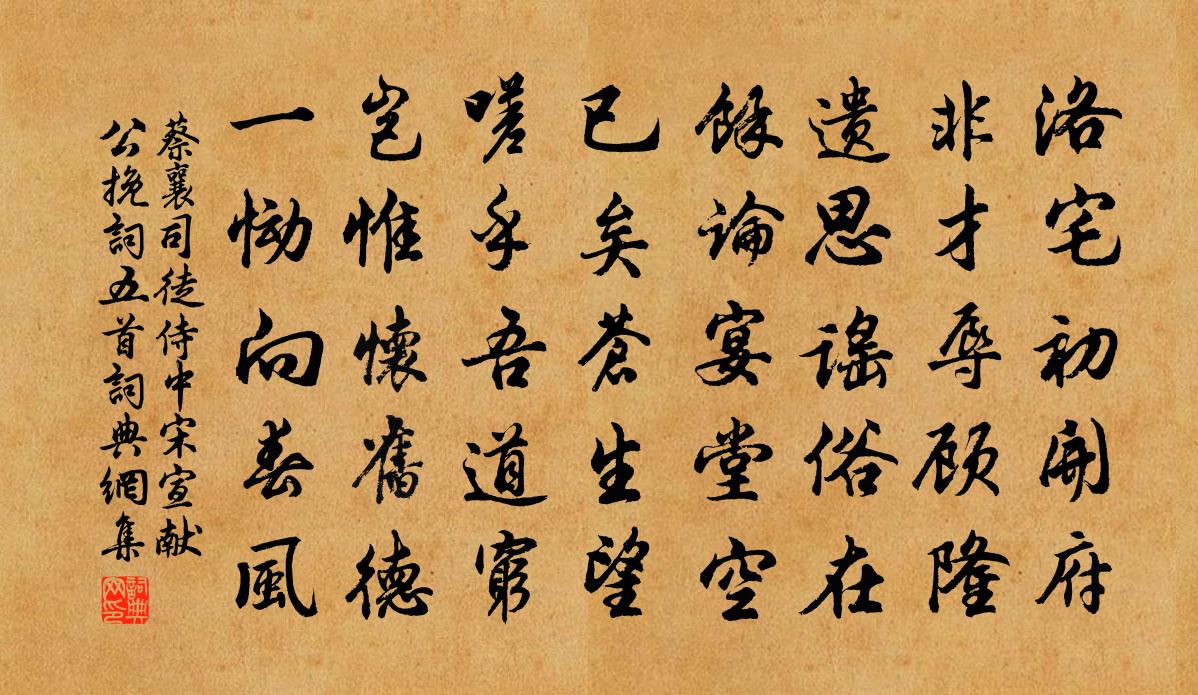 洛宅初開府
非才辱顾隆
遗思謡俗在
餘論宴堂空
已矣蒼生望
嗟乎吾道窮
岂惟懷舊德
一恸向春風
蔡襄司徒侍中宋宣献
公挽詞五首詞典網集
詞典网印